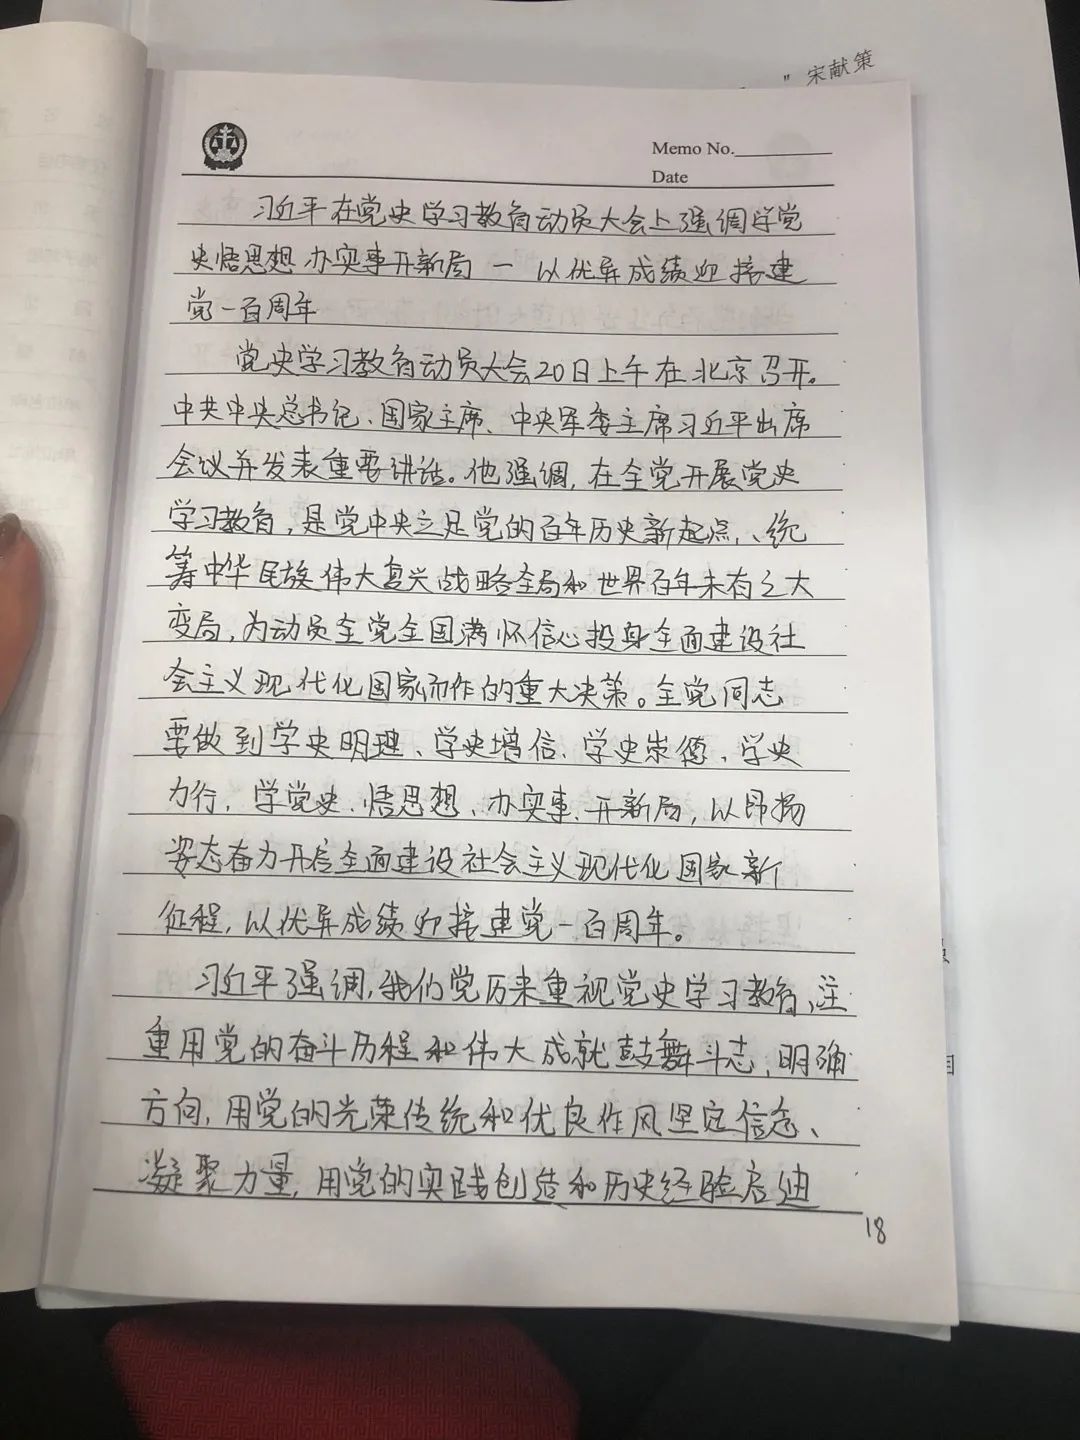 " 宋献策
Memo No.
Date
习近平在党史学习教育动员大会上强调学党
史悟思想 办实事开新局 一 以优异成绩迎接建
党一百周年
党史学习教育动员大会20日上午在北京召开。
中共中央总书记、国家主席、中央军委主席习近平出席
会议并发表重要讲话。他强调, 在全党开展党史
学习教育, 是党中央立足党的百年历史新起点、统
筹中华民族伟大复兴战略全局和世界百年未有之大
变局, 为动员全党全国满怀信心投身全面建设社
会主义现代化国家而作的重大决策。全党同志
要做到学史明理、学史增信、学史崇德、学史
力行, 学党史、悟思想、办实事、开新局, 以昂扬
姿态奋力开启全面建设社会主义现代化国家新
征程, 以优异成绩迎接建党一百周年。
习近平强调, 我们党历来重视党史学习教育, 注
重用党的奋斗历程和伟大成就鼓舞斗志、明确
方向, 用党的光荣传统和优良作风坚定信念、
凝聚力量, 用党的实践创造和历史经验启迪
18